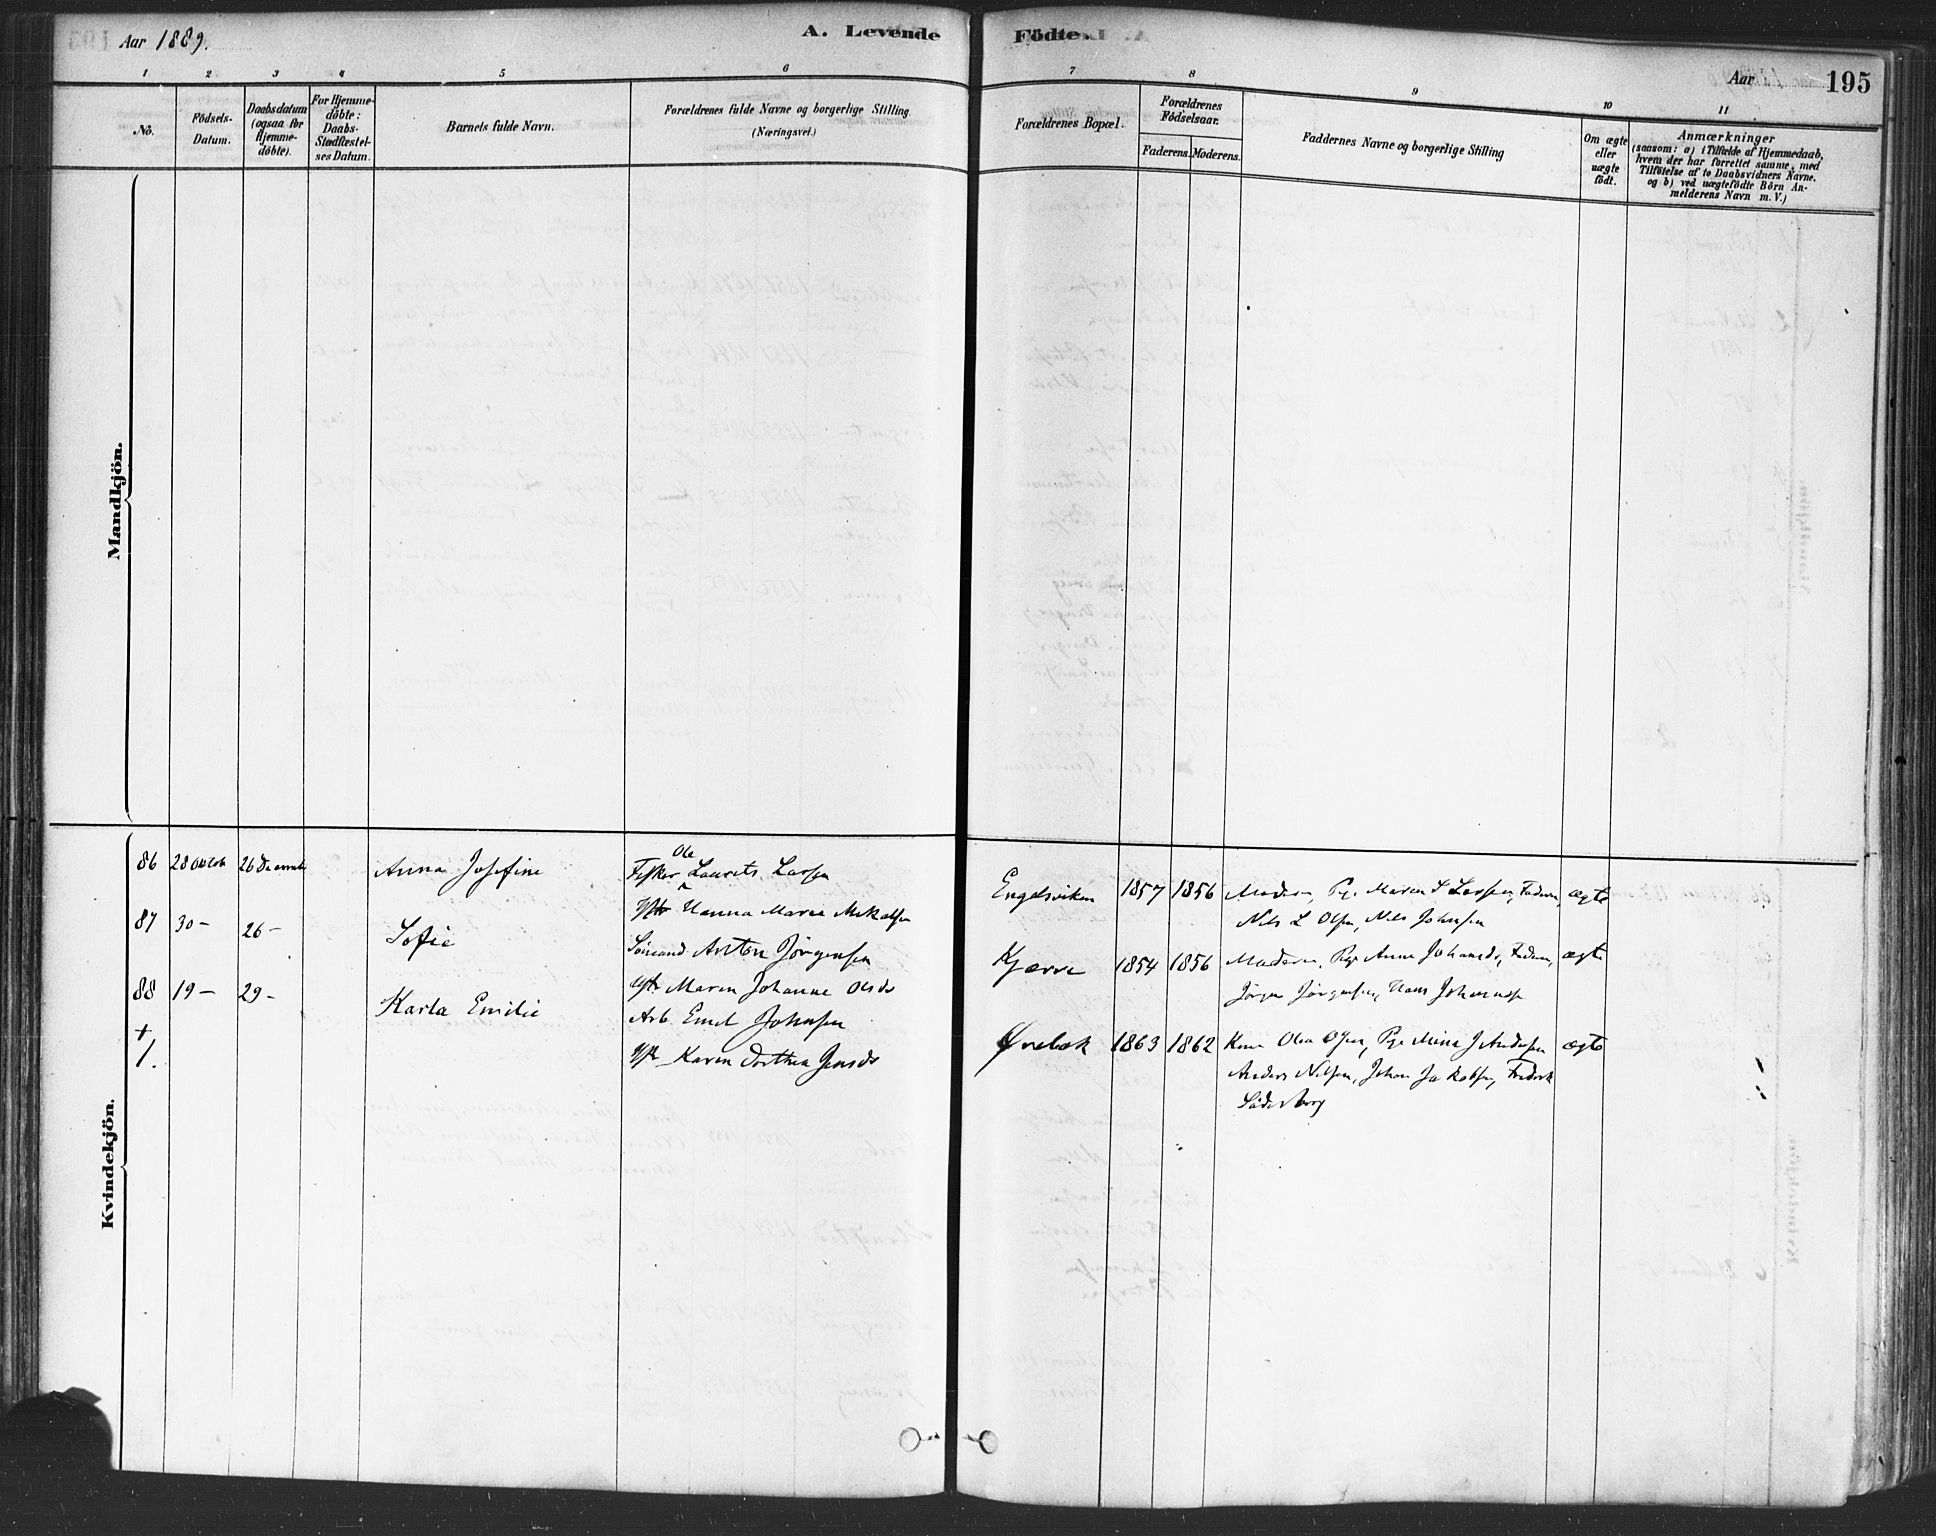 Aar 1889.
A. Levende Födte.
Aar 195
1 2 3 4 5 6 7 8 9 10 11
No.
Födsels-Datum.
Daabsdatum (ogsaa for Hjemme-döbte).
For Hjemme-döbte: Daabs-Stadfæstel-ses Datum.
Barnets fulde Navn.
Forældrenes fulde Navne og borgerlige Stilling.
(Næringsvei.)
Forældrenes Bopæl.
Forældrenes Födselsaar.
Faderens. Moderens.
Faddernes Navne og borgerlige Stilling
Om ægte eller uægte födt.
Anmærkninger
(saasom: a) i Tilfælde af Hjemmedaab,
hvem der har forrettet samme, med
Tilföielse af to Daabsvidners Navne.
og b) ved uægtefödte Börn An-
melderens Navn m. V.)
Mandkjön.
Kvindekjön.
86 28 Oktob 26 Decemb Anna Josefine Fisker Ole Laurits Larsen
Hanna Maria Mikalsen
Engelsviken 1857 1856 Moderen, Pge Maren S Larsen, Faderen, ægte
Nils L Olsen, Nils Johnsen
87 30 - 26 - Sofie Sömand Anton Jörgensen
Maren Johanne Olsd
Kjærre 1854 1856 Moderen, Pge Anne Johansd, Faderen, ægte
Jörgen Jörgensen, Hans Johannes
88 19 - 29 - Karla Emilie Arb Emil Johnsen
+
1.
Karen Dorthea Jensd
Ørebæk 1863 1862 Kone Olea Olsen, Pge Mina J Andersen ægte
Anders Nilsen, Johan Jakobsen, Fredrik
Söderberg